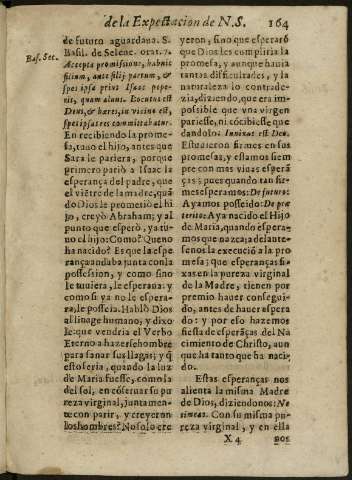 de la Expectacion de N.S. 164
Bas. Sec.
de futuro aguardaua. S.
Basil. de Selenc. orat. 7.
Accepta promissione, habuit
filium, ante filij partum, &
spei ipsa prius Isaac pepe-
rit, quam aluus. Locutus est
Deus, & hæres, in vicino est,
spei ipsa res commitabatur.
En recibiendo la prome-
sa, tuuo el hijo, antes que
Sara le pariera, porque
primero pariò a Isaac la
esperança del padre, que
el viẽtre de la madre, quã
do Dios le prometiò el hi
jo, creyò Abraham; y al
punto que esperò, ya tu-
uo el hijo: Como? Que no
ha nacido? Es que la espe
rança andaba junta con la
possession, y como sino
le tuuiera, le esperaua: y
como si ya no le espera-
ra, le posseia. Hablò Dios
al linage humano, y dixo
le: que vendria el Verbo
Eterno a hazerse hombre
para sanar sus llagas; y q̃
esto seria, quando la luz
de Maria fuesse, como la
del sol, en cõseruar su pu
reza virginal, juntamen-
te con parir, y creyeron
los hombres? No solo cre
yeron, sino que esperarõ
que Dios les cumpliria la
promesa, y aunque hauia
tantas dificultades, y la
naturaleza lo contrade-
zia, diziendo, que era im-
possible que vna virgen
pariesse, ni cõcibiesse que
dandolo: Innixus est Deo.
Estuuieron firmes en sus
promesas, y estamos siem
pre con mas viuas esperã
ças; pues quando tan fir-
mes esperamos: De futuro:
Ayamos posseido: De præ
terito: Aya nacido el Hijo
de Maria, quando espera-
mos que nazca; adelante-
senos la execuciõ a la pro
mesa; que esperanças fi-
xas en la pureza virginal
de la Madre, tienen por
premio hauer consegui-
do, antes de hauer espera
do: y por eso hazemos
fiesta de esperãças del Na
cimiento de Christo, aun
que ha tanto que ha naci-
do.
Estas esperanças nos
alienta la misma Madre
de Dios, diziendonos: Ne
timeas. Con su misma pu-
reza virginal, y en ella
X 4 nos